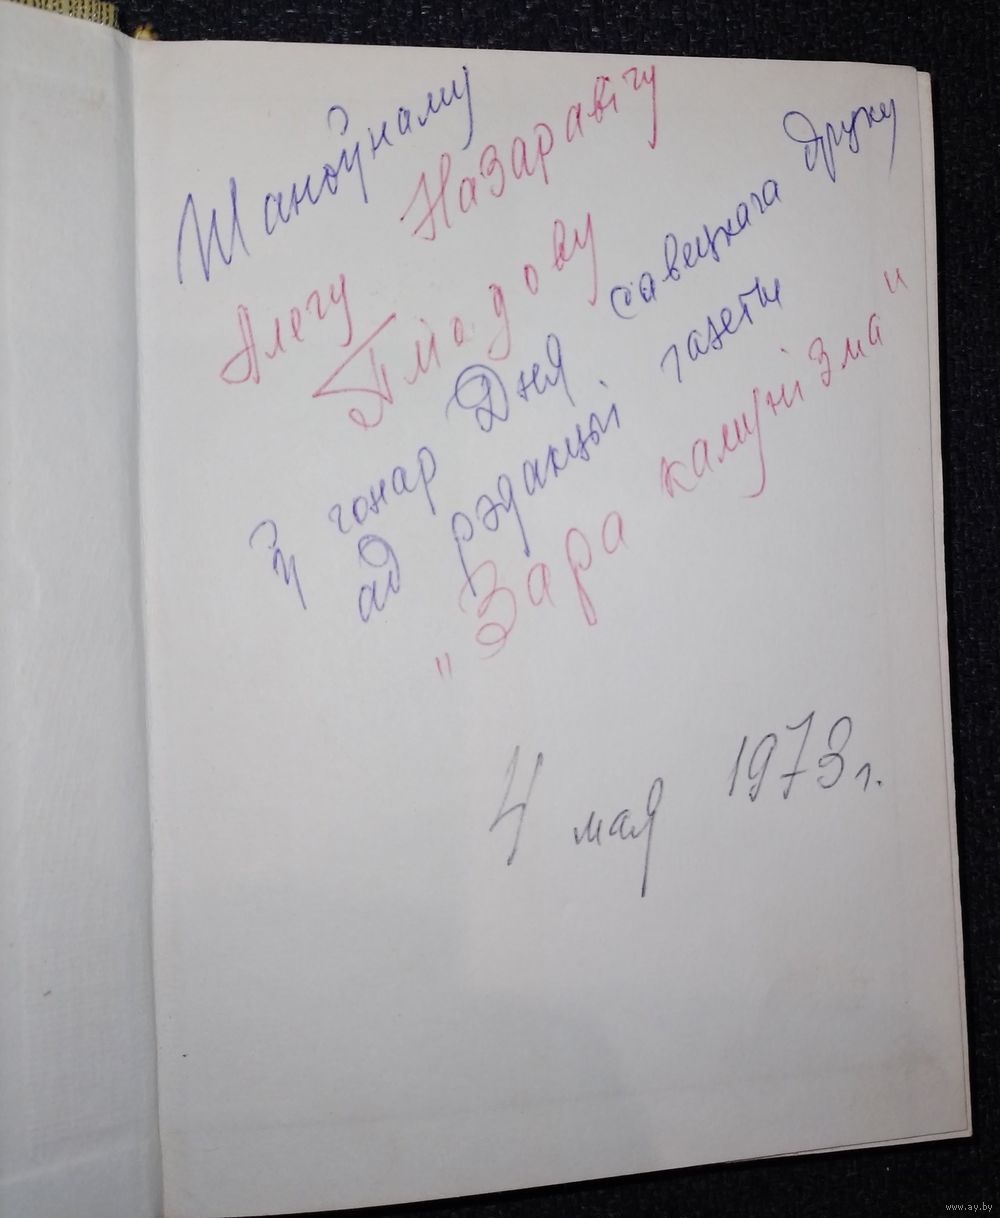 Шаноўнаму
Алегу Назаравічу
у гонар Дня савецкага друку
ад рэдакцыі газеты
"Зара камунізма"
4 мая 1973 г.
www.ay.by